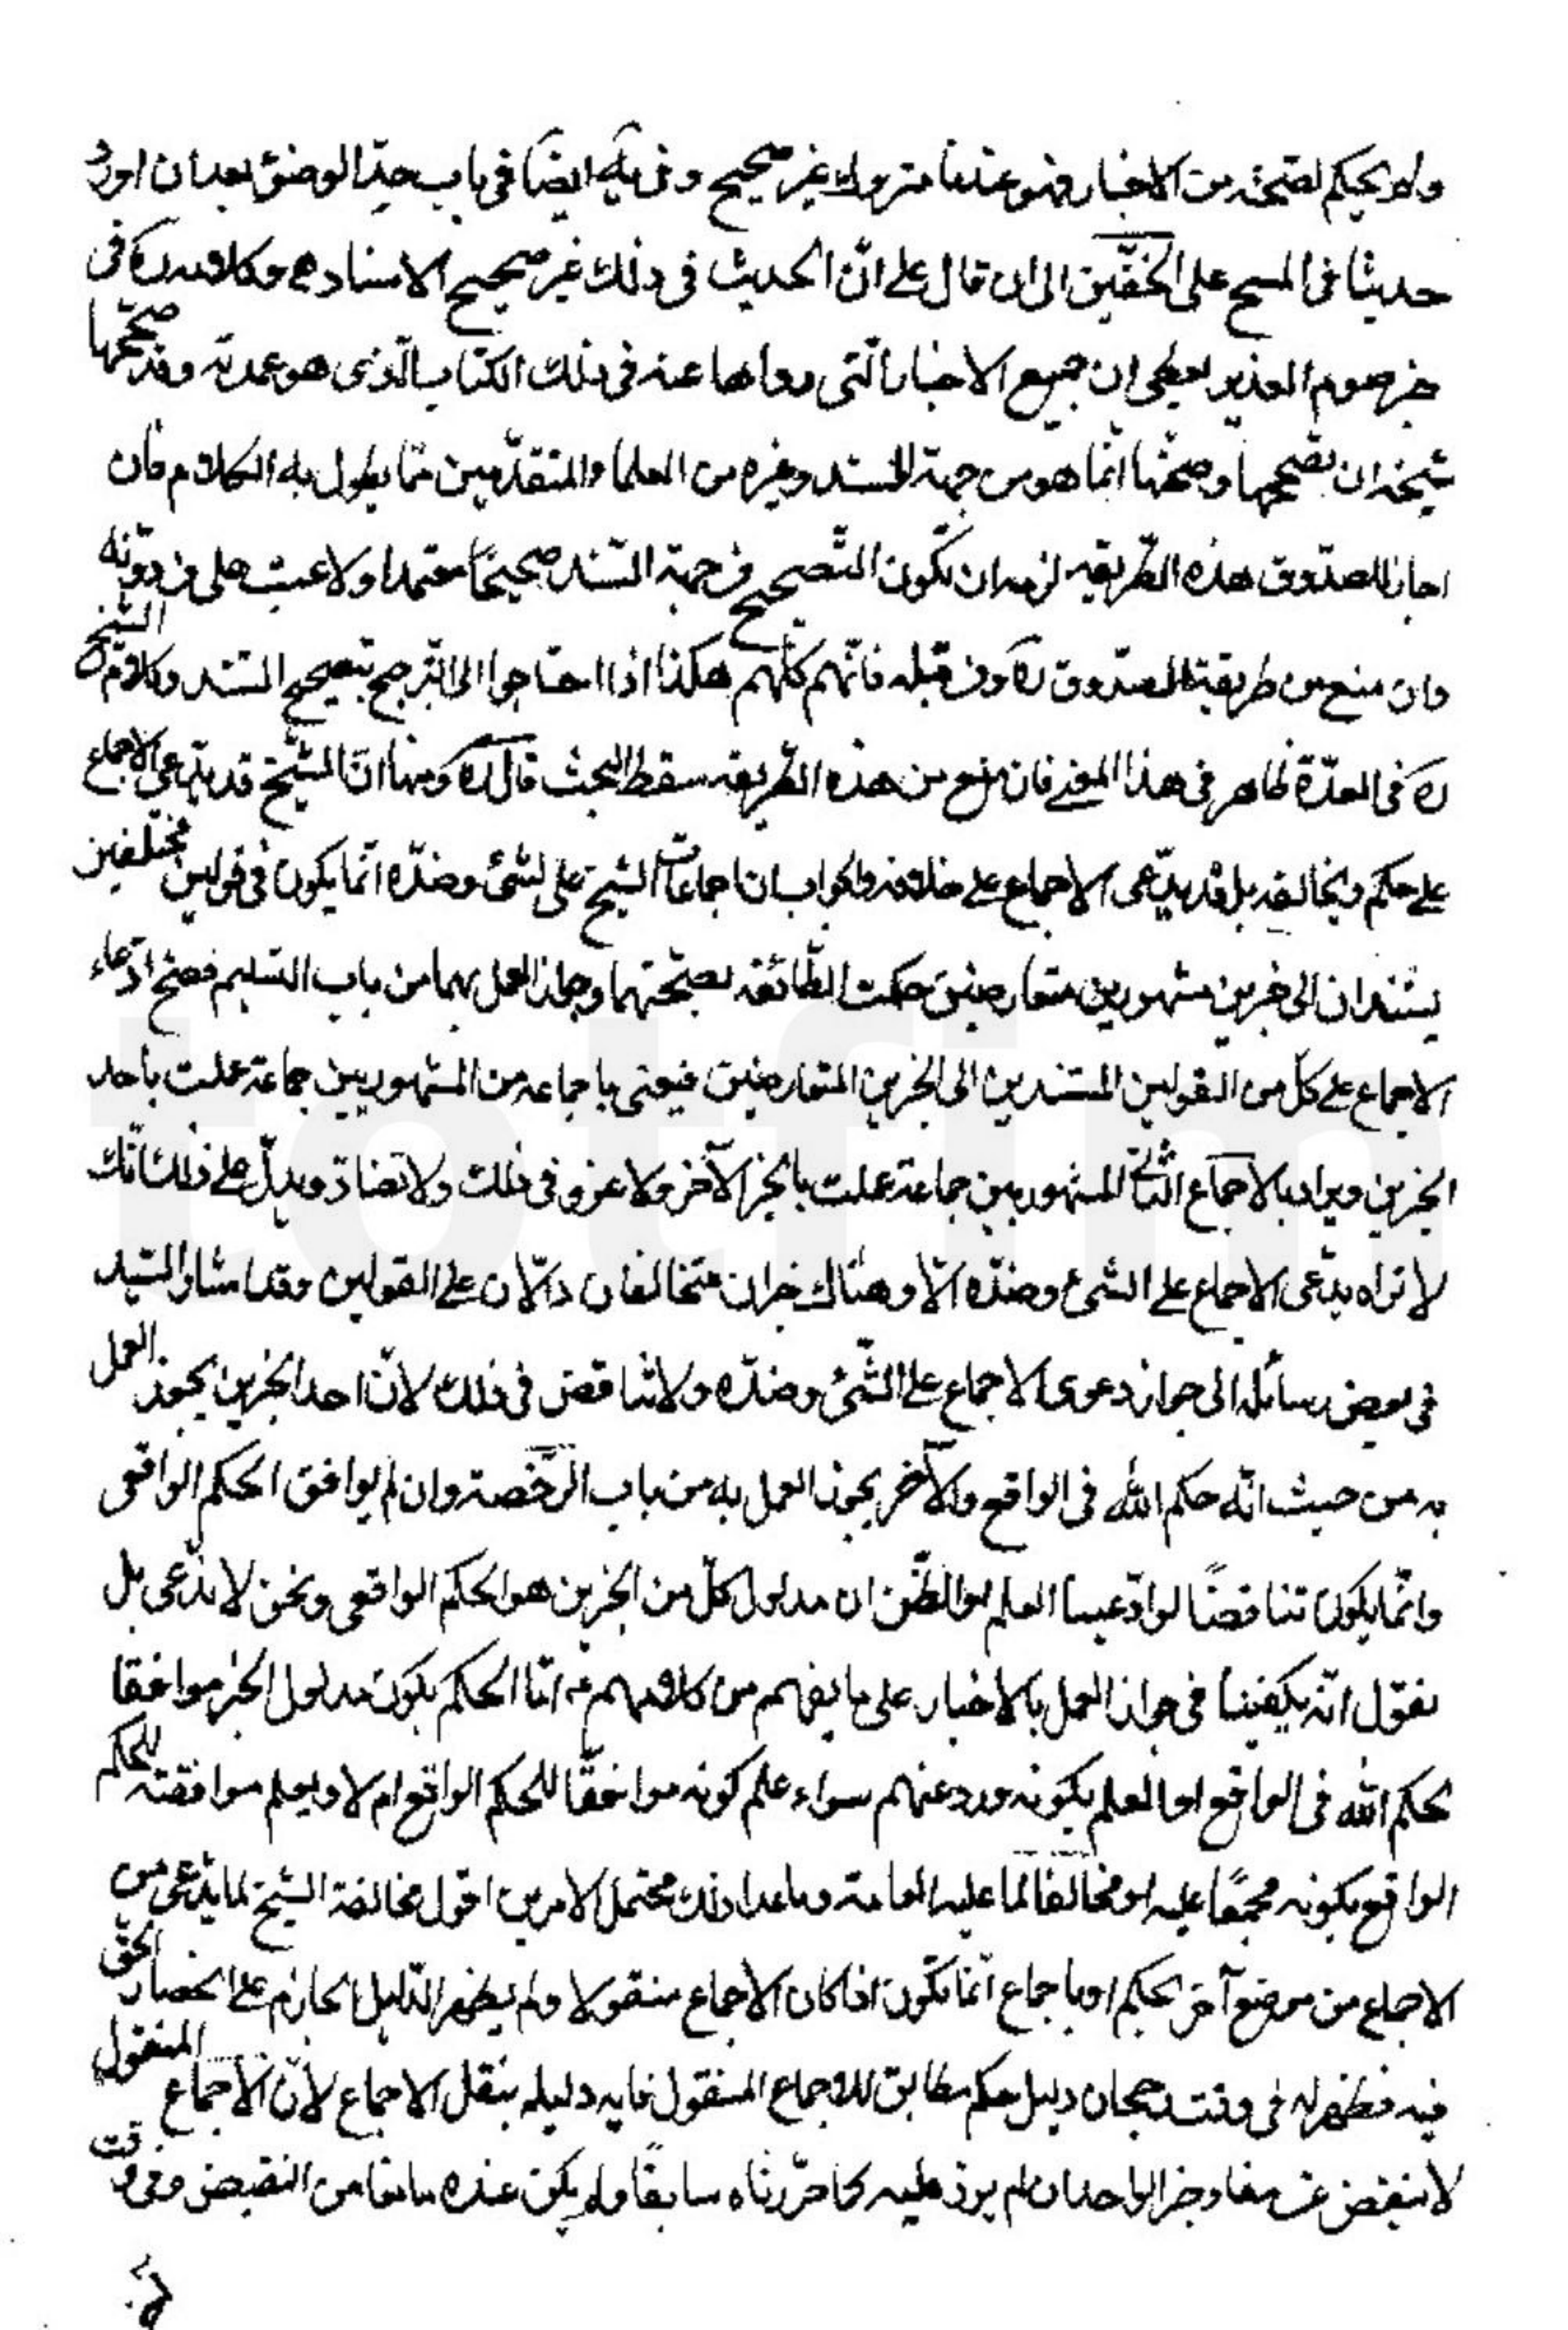 ولم يحكم بصحته من الاخبار فهو عندنا متروك غير صحيح وفى يه ايضا فى باب حدّ الوضوء بعد ان اورد
حديثا فى المسح على الخفّين الى ان قال على انّ الحديث فى ذلك غير صحيح الاسناد وكلامه ره فى
خبر صوم الغدير يعطى ان جميع الاخبار الّتى رواها عنه فى ذلك الكتاب الّذى هو عمدته وقد صحّحها
شيخه ان تصحيحها وصحّتها انّما هو من جهة السّند وغيره من العلماء والمتقدّمين ممّا يطول به الكلام فان
اجاز للصدّوق هذه الطّريقه لزمه ان تكون التّصحيح من جهة السّند صحيحًا معتمدا ولا عبث على من دوّنه
وان منع من طريقة الصدّوق ره ومن قبله فانّهم كلّهم هكذا اذا احتاجوا الى التّرجيح بتصحيح السّند وكلام الشّيخ
ره فى العدّة ظاهر فى هذا المعنى فان منع من هذه الطّريقه سقط البحث قال ره ومنها انّ الشّيخ قد يدّعى الاجماع
على حكم ويخالفه بل قد يدّعى الاجماع على خلافه والجواب ان اجماعات الشيخ على الشّىء وضدّه انّما يكون فى قولين مختلفين
يستندان الى خبرين مشهورين متعارضين حكمت الطّائفه بصحّتهما وجواز العمل بهما من باب التّسليم فصحّ ادّعاء
الاجماع على كلّ من القولين المستندين الى الخبرين المتعارضين فيعنى باجماعه من المشهوريين جماعة عملت باحد
الخبرين ويراد بالاجماع الثّانى المشهوريين جماعة عملت بالخبر الآخر ولا غرو فى ذلك ولا تضادّ ويدلّ على ذلك انّك
لا تراه يدّعى الاجماع على الشىء وضدّه الّا وهناك خبران متخالفان دالّان على القولين وقد اشار السّيّد
فى بعض رسائله الى جواز دعوى الاجماع على الشّىء وضدّه ولا تناقض فى ذلك لانّ احد الخبرين يجوز العمل
به من حيث انّه حكم اللّه فى الواقع والآخر يجوز العمل به من باب الرّخصة وان لم يوافق الحكم الواقعى
وانّما يكون تناقضًا لو ادّعينا العلم او الظّن ان مدلول كلّ من الخبرين هو الحكم الواقعى ونحن لا ندّعى بل
نقول انّه يكفينا فى جواز العمل بالاخبار على ما يفهم من كلامهم امّا الحكم بكون مدلول الخبر موافقا
لحكم اللّه فى الواقع او العلم بكونه ورد عنهم سواء علم كونه موافقًا للحكم الواقع ام لا ويعلم موافقته للحكم
الواقع بكونه مجمعًا عليه او مخالفا لما عليه العامة وما عدا ذلك محتمل الامرين اقول مخالفة الشيخ لما يدّعى من
الاجماع من موضع آخر بحكم او باجماع انّما تكون اذا كان الاجماع منقولا ولم يظهر الدّليل الجازم على انحصار الحقّ
فيه فظهر له فى وقت رجحان دليل حكم مطابق للاجماع المنقول فايّد دليله بنقل الاجماع لانّ الاجماع المنقول
لا ينقض عن مفاد خبر الواحد ان لم يزد عليه كما حرّرناه سابقًا ولم يكن عنده مانعا من النقيض وفى وقت